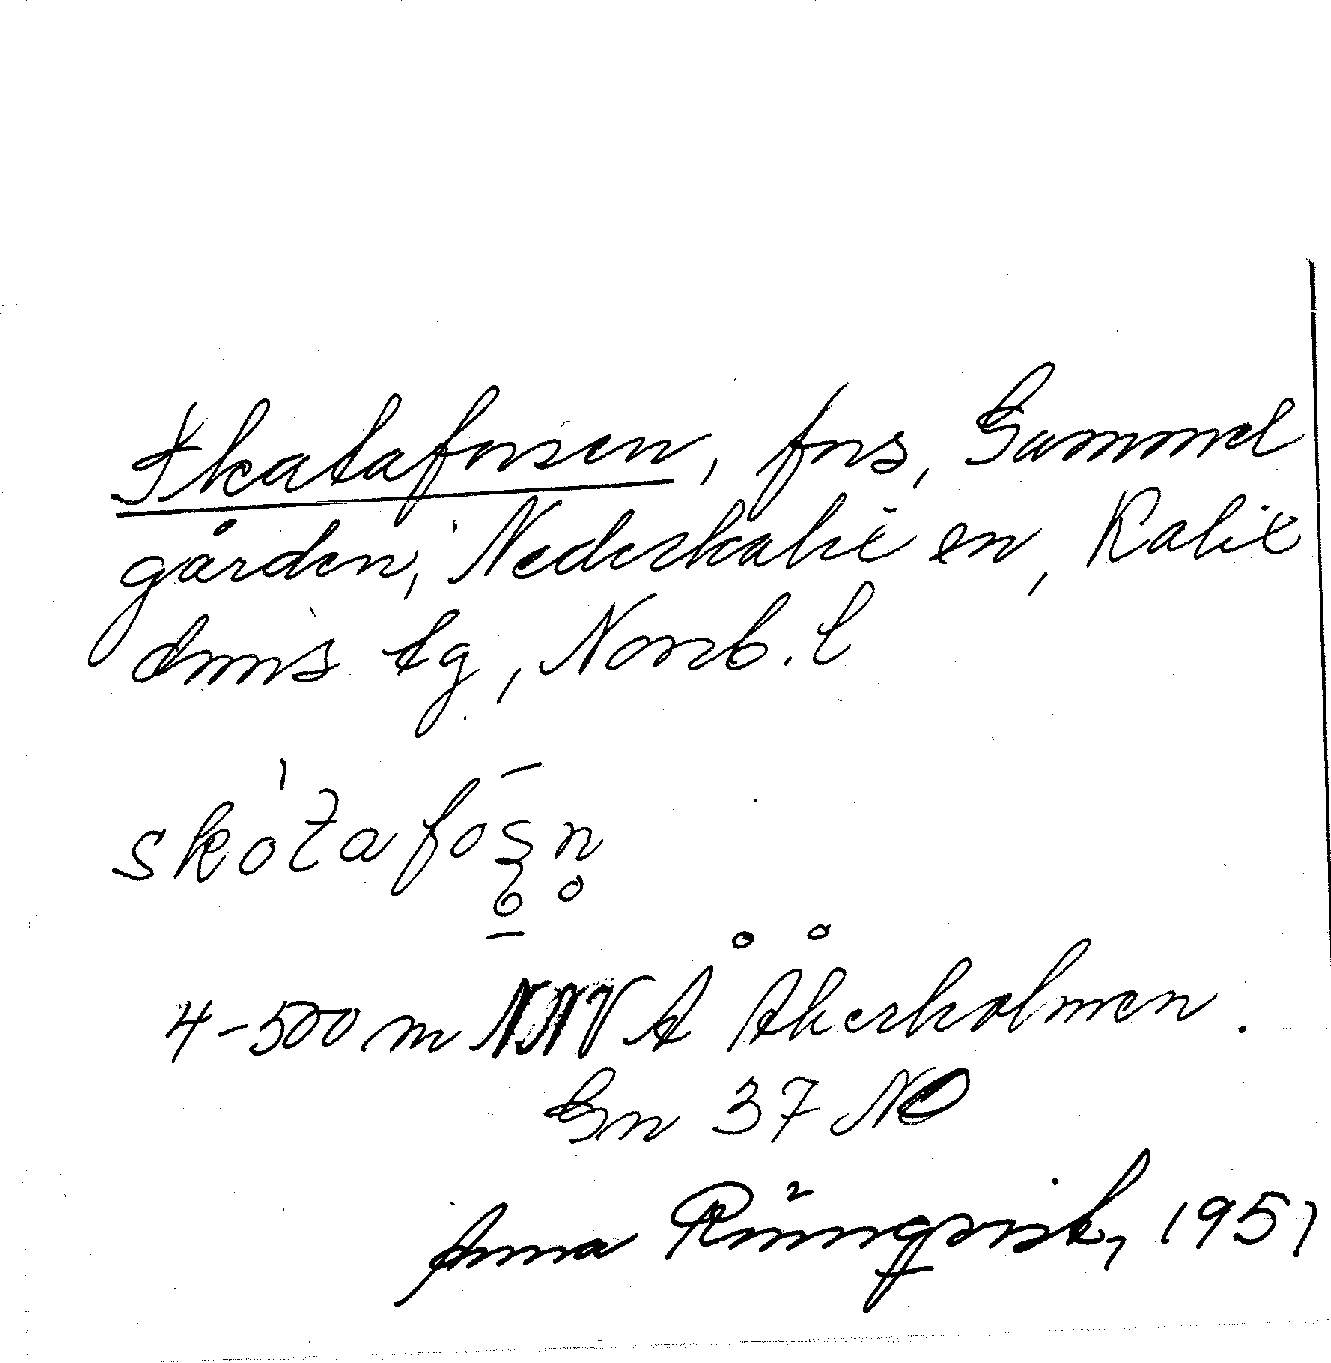 Skataforsen, fors, Gammel
gården, Nederkalix sn, Kalix
dmis tg, Norrb. l
skótafós̩n̥
4-500 m NNV Å Åkerholmen.
Gn 37 NO
Anna Rönnqvist, 1951